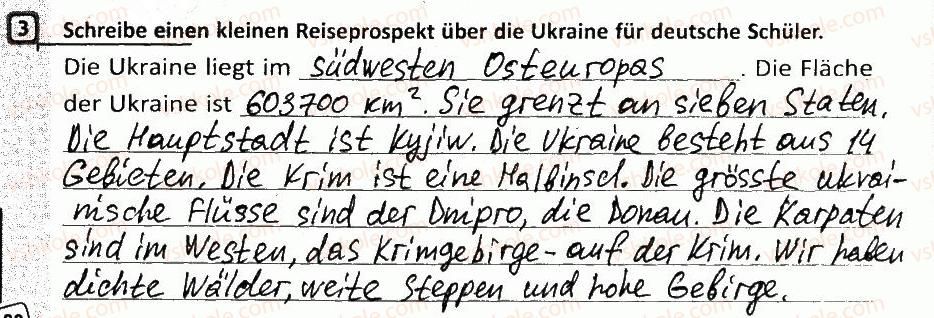 3 Schreibe einen kleinen Reiseprospekt über die Ukraine für deutsche Schüler.
Die Ukraine liegt im südwesten Osteuropas. Die Fläche
der Ukraine ist 603700 km². Sie grenzt an sieben Staten.
Die Hauptstadt ist Kyjiw. Die Ukraine besteht aus 14
Gebieten. Die Krim ist eine Halbinsel. Die grösste ukrai-
nische Flüsse sind der Dnipro, die Donau. Die Karpaten
sind im Westen, das Krimgebirge - auf der Krim. Wir haben
dichte Wälder, weite Steppen und hohe Gebirge.